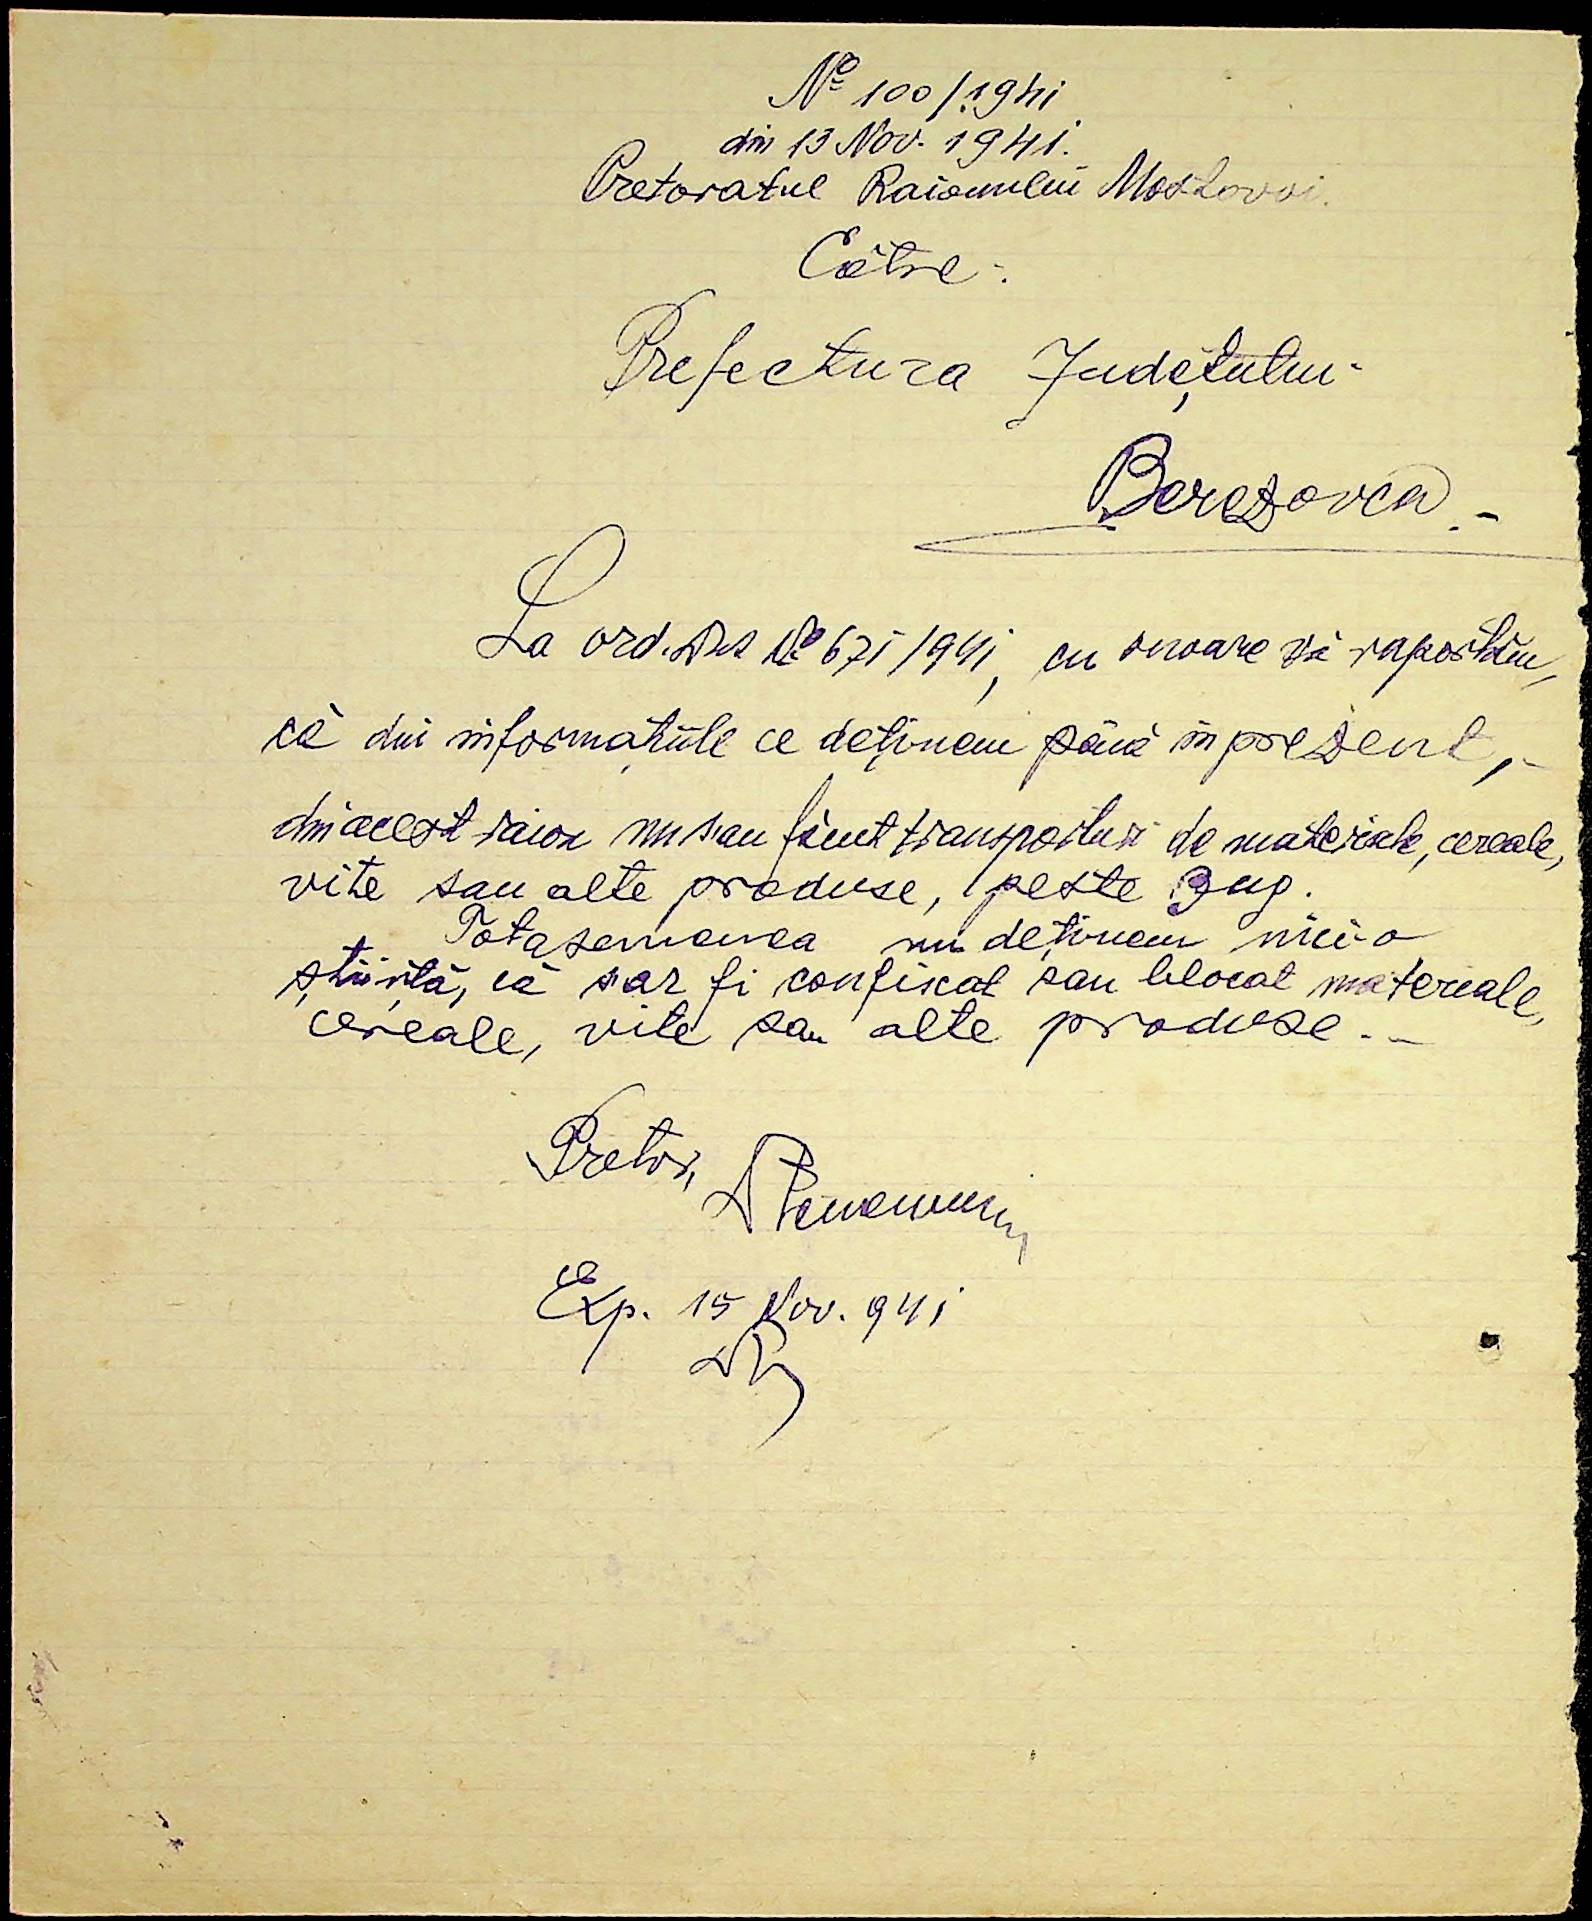 Nº 100/1941
din 13 Nov. 1941.
Pretoratul Raionului Mostovoi.
Către.
Prefectura Județului
Berezovca.-
La ord. Dvs Nº 671/941, cu onoare vă raportăm,
că din informațiile ce deținem până in prezent,-
din acest raion nu s'au făcut transporturi de materiale, cereale,
vite sau alte produse, peste Bug.
Totasemenea nu deținem nici-o
știință, că s'ar fi confiscat sau blocat matereale,
cereale, vite sau alte produse.-
Pretor,
Exp. 15 Nov. 941